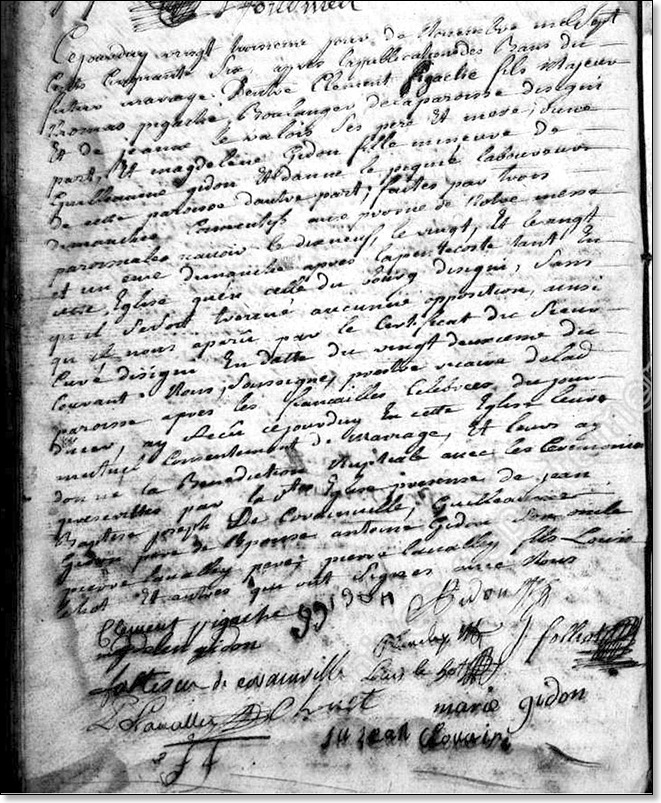 Cejourduy vingt troisieme jour de Novembre mil sept
cents cinquante six, apres la publication des Bans du
futur mariage Dentre Clement pigache fils Majeur
thomas pigache, Boulanger de la paroisse disigni
Et de jeanne le valois Ses pere Et mere, d'une
part, Et magdeleine Gidon fille mineure de
Guilleaume gidon Et danne le piquié laboureurs
De cette paroisse dautre part, faites par trois
dimanches Consecutifs aux prorne de Notre messe
paroissiales scavoir le dixneuf, le vingt, Et le vingt
et un eme dimanche apres la pentecoste tant En
notre Eglise qu'en celle du bourg disigni, Sans
qu'il se soit trouvé aucunne opposition, ainsi
qu'il nous apparu par le Certificat du Sieur
Curé disigni En datte du vingt deuxieme du
Courant Nous Soussigné, prestre vicaire de lad
paroisse apres les fiancailles Celebrées du jour
dhier, ay Recu cejourduy En cette Eglise leurs
mutuel Consentement de Mariage, Et leurs ay
donné la Benediction Nuptiale avec les Ceremonies
prescrittes par la Ste Eglise presence de jean
Baptiste joseph De Covainville, Guilleaume
Gidon pere de l'Epouse antoine Gidon Son
pierre Lavalley pere, pierre Lavalley fils Louis
Et autres qui ont Signés avec Nous
Clement pigache g gidon Gidon
magdelen gidon J folliot
de covainville Louis le
Lavalley marie gidon
jean